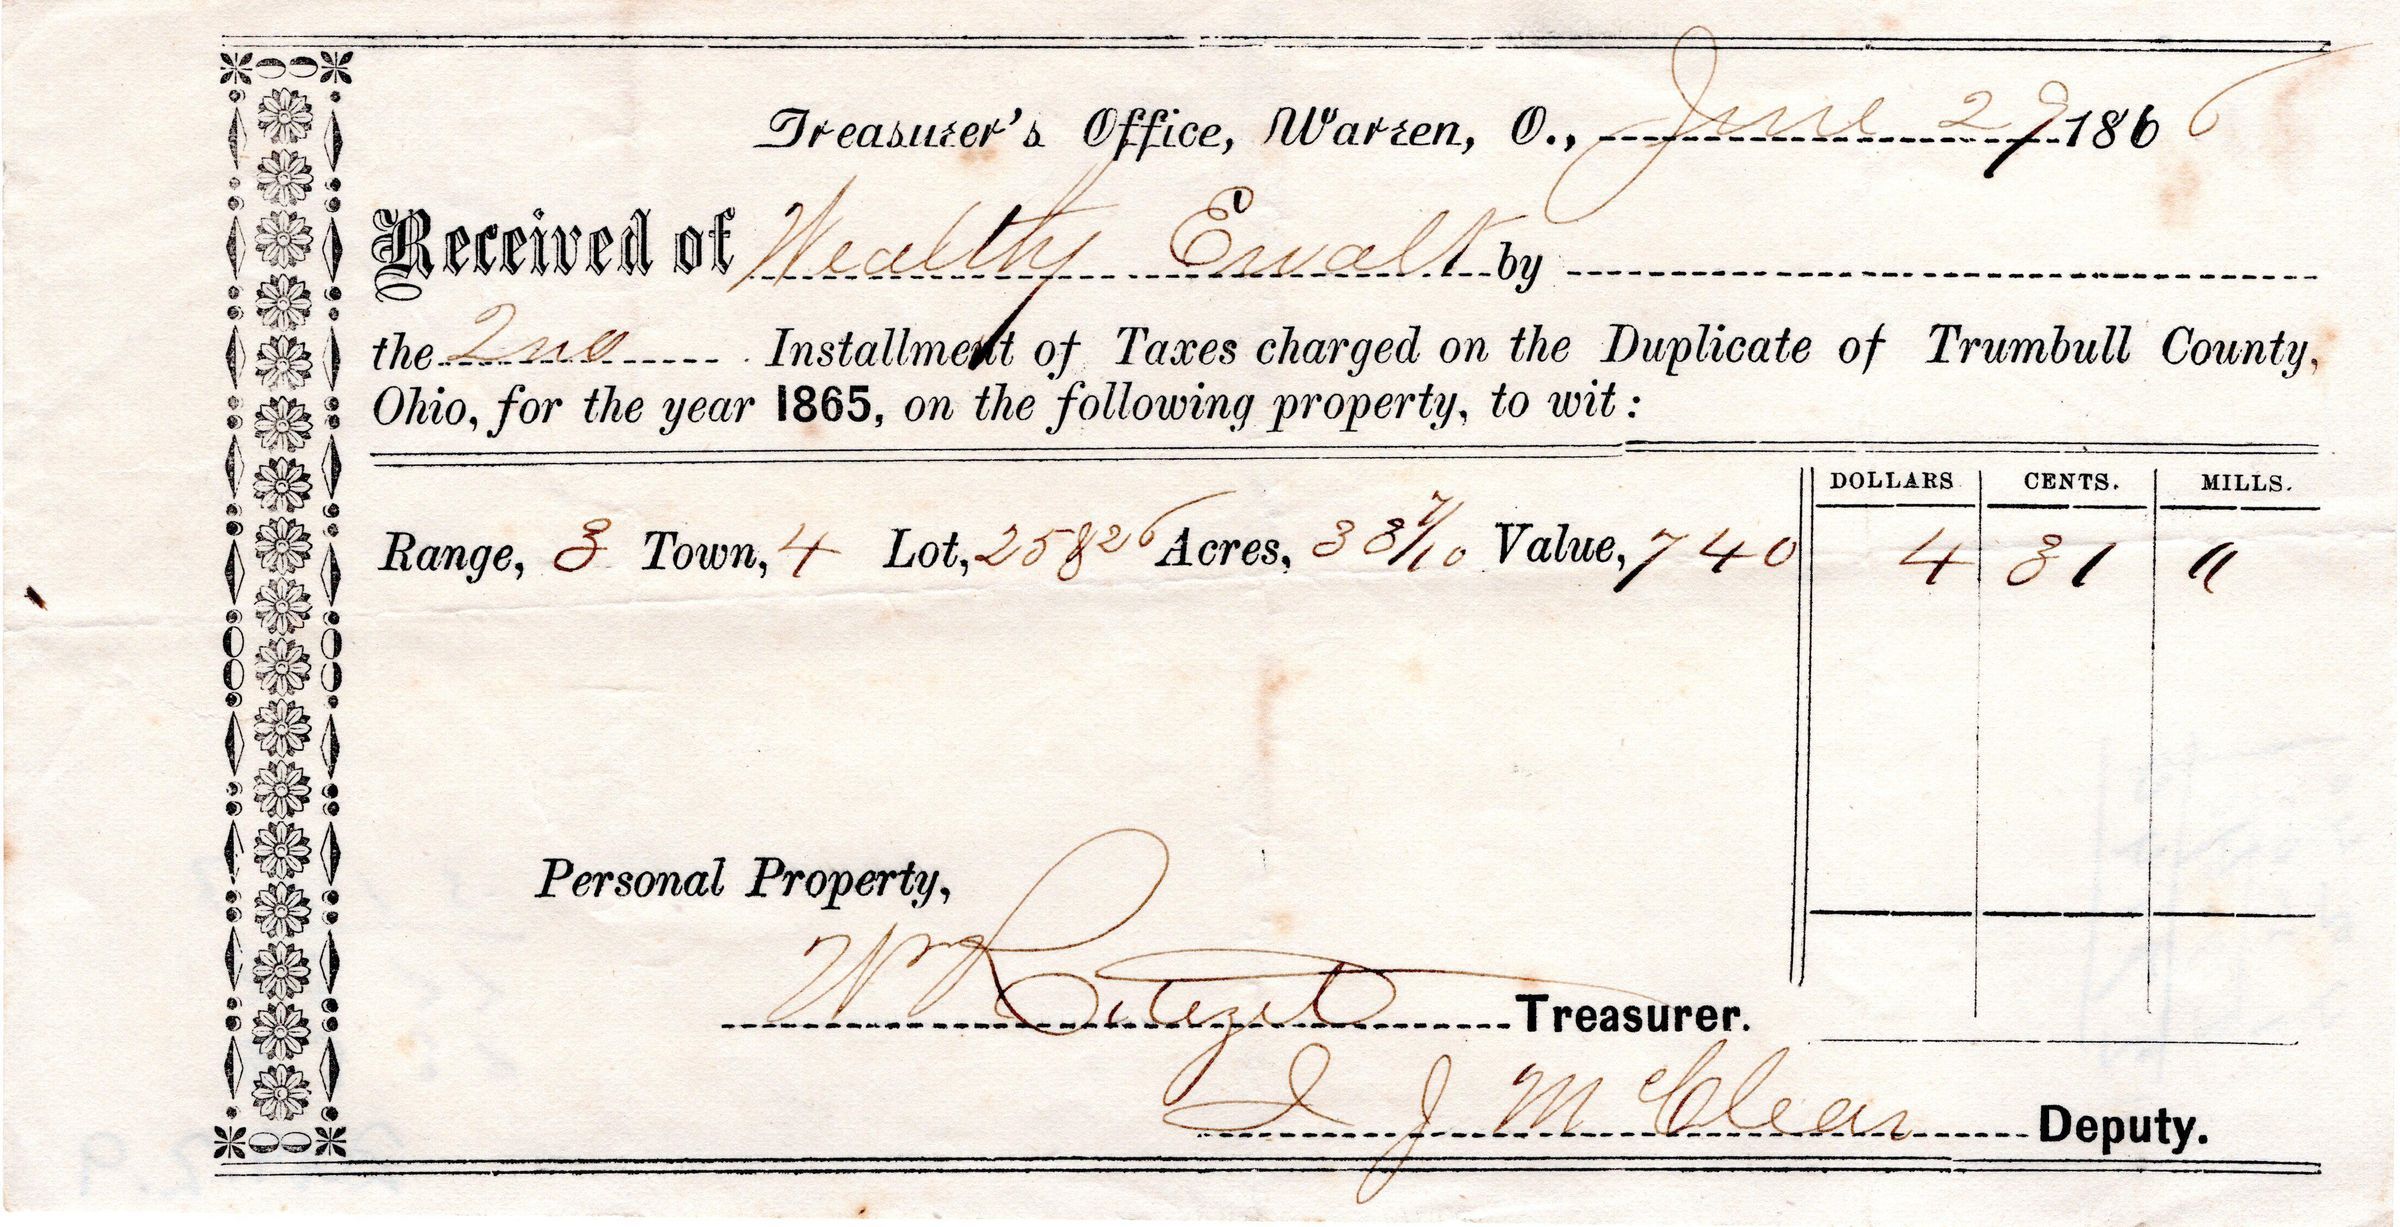 Treasurer's Office, Warren, O., June 29 1866
Received of Wealthy Ewalt by
the 2nd Installment of Taxes charged on the Duplicate of Trumbull County,
Ohio, for the year 1865, on the following property, to wit:
DOLLARS CENTS. MILLS.
Range, 3 Town, 4 Lot, 25 & 26 Acres, 33 7/10 Value, 740 4 31 "
Personal Property,
Wm Ritezel Treasurer.
I J McClean Deputy.